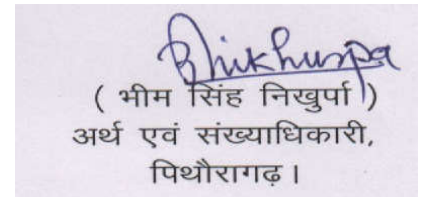 BNikhurpa
( भीम सिंह निखुर्पा )
अर्थ एवं संख्याधिकारी,
पिथौरागढ़।